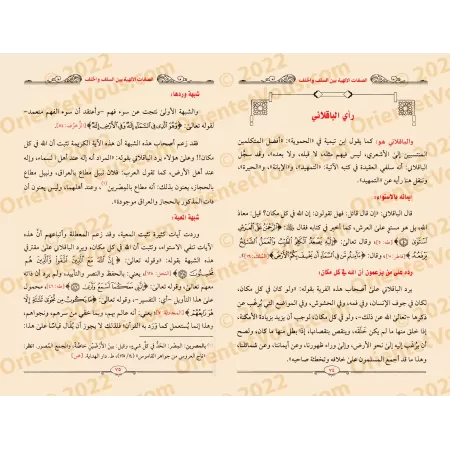 الصفات الإلهية بين السلف والخلف
رأي الباقلاني
والباقلاني هو: كما يقول ابن تيمية في «الحموية»: «أفضل المتكلمين
المنتسبين إلى الأشعري، ليس فيهم مثله، لا قبله، ولا بعده»، وقد سجَّل
عقيدته السلفية في كتبه الآتية: «التمهيد»، و«الإبانة»، و«الحيرة»،
وننقل هنا رأيه عن «التمهيد».
إيمانه بالاستواء:
قال الباقلاني: «إن قال قائل: فهل تقولون: إن الله في كل مكان؟ قيل: معاذ
الله، بل هو مستوٍ على العرش، كما أخبر في كتابه فقال:
رده على من يزعمون أن الله في كل مكان:
يرد الباقلاني على أصحاب هذه الفرية بقوله: «ولو كان في كل مكان، لكان
في جوف الإنسان، وفي فمه، وفي الحشوش، وفي المواضع التي يُرغب عن
ذكرها -تعالى الله عن ذلك-، ولو في كل مكان، لوجب أن يزيد بزيادة الأمكنة،
إذا خلق منها ما لم يكن خلقه، وينقص بنقصانها، إذا بطل منها ما كان، ولصح
أن يُرغب إليه إلى نحو الأرض، وإلى وراء ظهورنا، وعن أيماننا، وعن شمائلنا،
وهذا ما قد أجمع المسلمون على خلافه وتخطئة صاحبه».
٧٤
الصفات الإلهية بين السلف والخلف
شبهة وردها:
والشبهة الأولى نتجت عن سوء فهم -وأعتقد أن سوء الفهم متعمد-
لقوله تعالى: ﴿وَهُوَ الَّذِي فِي السَّمَاءِ إِلَهٌ وَفِي الْأَرْضِ إِلَهٌ﴾
فقد زعم أصحاب هذه الشبهة أن هذه الآية الكريمة تثبت أن الله في كل
مكان!! وعلى هؤلاء يرد الباقلاني بقوله: «المراد أنه إله عند أهل السماء، وإله
عند أهل الأرض، كما تقول العرب: فلان نبيل مطاع بالعراق، ونبيل مطاع
بالحجاز، يعنون بذلك: أنه مطاع بالمصرين(١)، وعند أهلهما، وليس يعنون أن
ذات المذكور بالحجاز والعراق موجودة».
شبهة المعية:
وردت آيات كثيرة تثبت المعية، وقد زعم المعطلة وأتباعهم أنَّ هذه
الآيات تنفي الاستواء، وتثبت أن الله في كل مكان، ويرد الباقلاني على مفترقي
هذه الشبهة بقوله: «وقوله تعالى: ﴿إِنَّ اللَّهَ مَعَ الَّذِينَ اتَّقَوْا وَالَّذِينَ هُمْ
مُحْسِنُونَ﴾ يعني: بالحفظ والنصر والتأييد، ولم يرد أن ذاته
معهم تعالى، وقوله تعالى: ﴿إِنَّنِي مَعَكُمَا أَسْمَعُ وَأَرَى﴾
على هذا التأويل -أي: التفسير-، وقوله تعالى: ﴿مَا يَكُونُ مِنْ نَجْوَى ثَلَاثَةٍ إِلَّا
هُوَ رَابِعُهُمْ﴾ يعني: أنه عالم بهم، وبما خفي من سرهم، ونجواهم،
وهذا إنما يُستعمل كما ورد به القرآن؛ فلذلك لا يجوز أن يُقال قياسًا على هذا:
٧٥
© 2022
OrientetVous.com